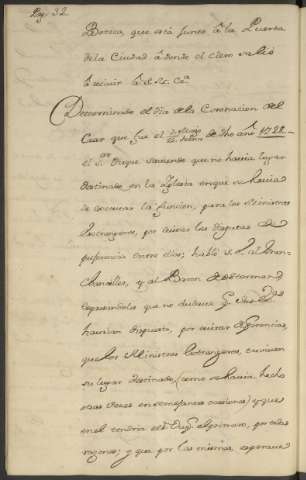 Pag. 32
Botica, que está junto â la Puerta
de la Ciudad â donde el clero salió
â recivir â S. M. Cª
Determinado el Dia de la Coronacion del
Czar que fue el de dho año 1728.
el Sr. Duque sabiendo que no havia lugar
destinado en la Iglesia en que se havia
de executar la funcion, para los Ministros
Extrangeros, por evitar disputas de
preferencia entre ellos; habló S. E. al Gran
Chanciller, y al Baron de Osterman
representandoles que no dudava
havrian dispuesto, por evitar diferencias,
que los Ministros Extrangeros, tuviesen
su lugar destinado, (como se havia hecho
otras veces en semejantes ocasiones) y que
en el tendria el primero, por todas
razones; y que por las mismas esperava